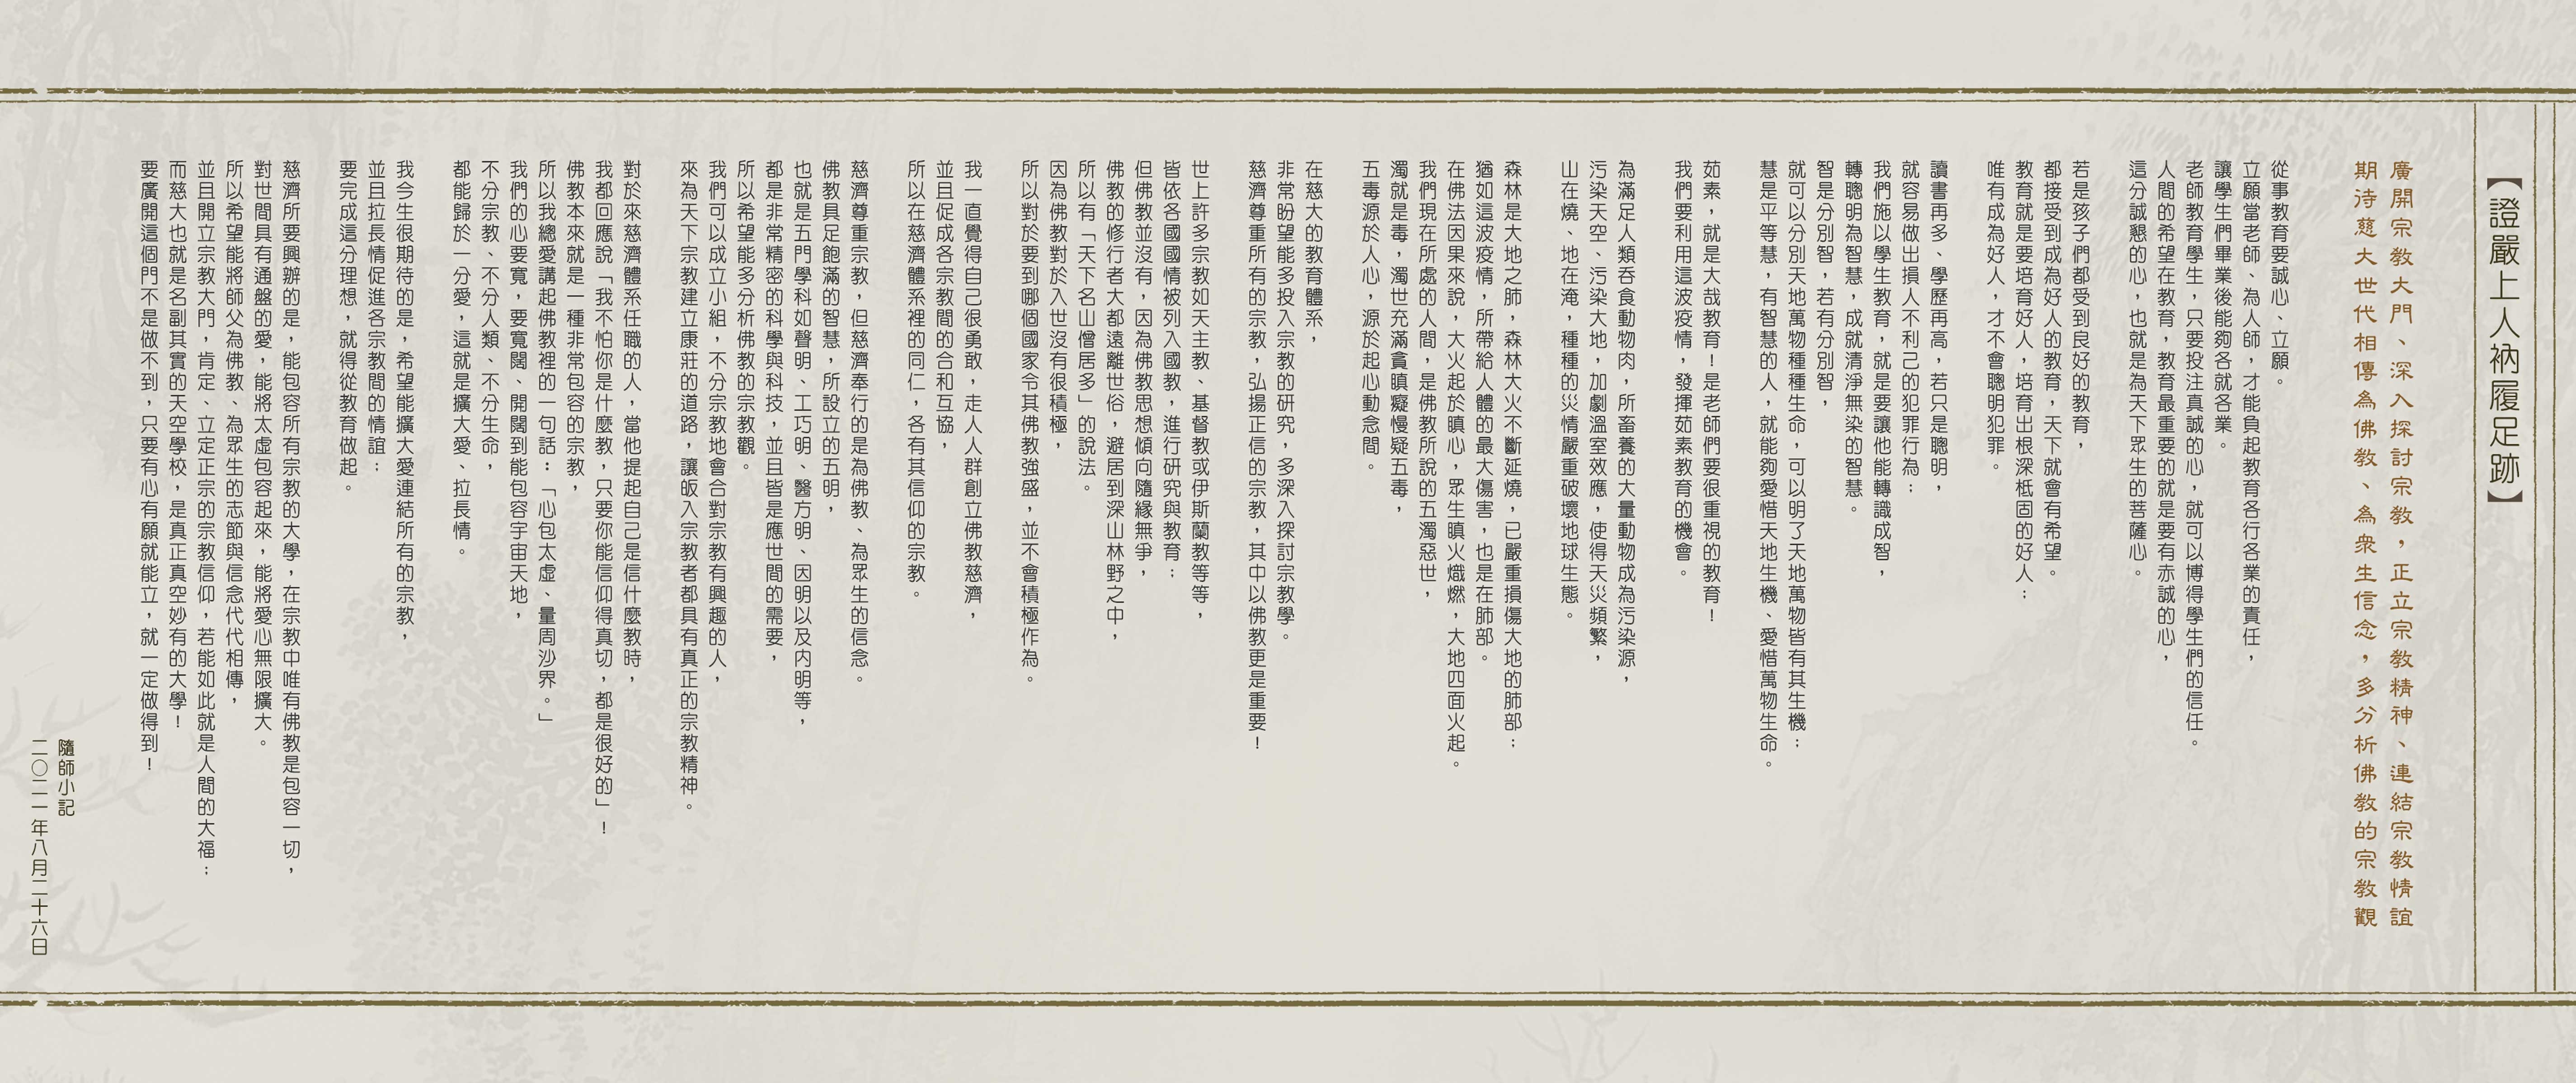 【證嚴上人衲履足跡】
廣開宗教大門、深入探討宗教，正立宗教精神、連結宗教情誼
期待慈大世代相傳為佛教、為眾生信念，多分析佛教的宗教觀
從事教育要誠心、立願。
立願當老師、為人師，才能負起教育各行各業的責任，
讓學生們畢業後能夠各就各業。
老師教育學生，只要投注真誠的心，就可以博得學生們的信任。
人間的希望在教育，教育最重要的就是要有赤誠的心，
這分誠懇的心，也就是為天下眾生的菩薩心。
若是孩子們都受到良好的教育，
都接受到成為好人的教育，天下就會有希望。
教育就是要培育好人，培育出根深柢固的好人；
唯有成為好人，才不會聰明犯罪。
讀書再多、學歷再高，若只是聰明，
就容易做出損人不利己的犯罪行為；
我們施以學生教育，就是要讓他能轉識成智，
轉聰明為智慧，成就清淨無染的智慧。
智是分別智，若有分別智，
就可以分別天地萬物種種生命，可以明了天地萬物皆有其生機；
慧是平等慧，有智慧的人，就能夠愛惜天地生機、愛惜萬物生命。
茹素，就是大哉教育！是老師們要很重視的教育！
我們要利用這波疫情，發揮茹素教育的機會。
為滿足人類吞食動物肉，所畜養的大量動物成為污染源，
污染天空、污染大地，加劇溫室效應，使得天災頻繁，
山在燒、地在淹，種種的災情嚴重破壞地球生態。
森林是大地之肺，森林大火不斷延燒，已嚴重損傷大地的肺部；
猶如這波疫情，所帶給人體的最大傷害，也是在肺部。
在佛法因果來說，大火起於瞋心，眾生瞋火熾燃，大地四面火起。
我們現在所處的人間，是佛教所說的五濁惡世，
濁就是毒，濁世充滿貪瞋癡慢疑五毒，
五毒源於人心，源於起心動念間。
在慈大的教育體系，
非常盼望能多投入宗教的研究，多深入探討宗教學。
慈濟尊重所有的宗教，弘揚正信的宗教，其中以佛教更是重要！
世上許多宗教如天主教、基督教或伊斯蘭教等等，
皆依各國國情被列入國教，進行研究與教育；
但佛教並沒有，因為佛教思想傾向隨緣無爭，
佛教的修行者大都遠離世俗，避居到深山林野之中，
所以有「天下名山僧居多」的說法。
因為佛教對於入世沒有很積極，
所以對於要到哪個國家令其佛教強盛，並不會積極作為。
我一直覺得自己很勇敢，走人人群創立佛教慈濟，
並且促成各宗教間的合和互協，
所以在慈濟體系裡的同仁，各有其信仰的宗教。
慈濟尊重宗教，但慈濟奉行的是為佛教、為眾生的信念。
佛教具足飽滿的智慧，所設立的五明，
也就是五門學科如聲明、工巧明、醫方明、因明以及內明等，
都是非常精密的科學與科技，並且皆是應世間的需要，
所以希望能多分析佛教的宗教觀。
我們可以成立小組，不分宗教地會合對宗教有興趣的人，
來為天下宗教建立康莊的道路，讓皈入宗教者都具有真正的宗教精神。
對於來慈濟體系任職的人，當他提起自己是信什麼教時，
我都回應說「我不怕你是什麼教，只要你能信仰得真切，都是很好的」！
佛教本來就是一種非常包容的宗教，
所以我總愛講起佛教裡的一句話：「心包太虛、量周沙界。」
我們的心要寬，要寬闊、開闊到能包容宇宙天地，
不分宗教、不分人類、不分生命，
都能歸於一分愛，這就是擴大愛、拉長情。
我今生很期待的是，希望能擴大愛連結所有的宗教，
並且拉長情促進各宗教間的情誼；
要完成這分理想，就得從教育做起。
慈濟所要興辦的是，能包容所有宗教的大學，在宗教中唯有佛教是包容一切，
對世間具有通盤的愛，能將太虛包容起來，能將愛心無限擴大。
所以希望能將師父為佛教、為眾生的志節與信念代代相傳，
並且開立宗教大門，肯定、立定正宗的宗教信仰，若能如此就是人間的大福；
而慈大也就是名副其實的天空學校，是真正真空妙有的大學！
要廣開這個門不是做不到，只要有心有願就能立，就一定做得到！
隨師小記
二〇二一年八月二十六日